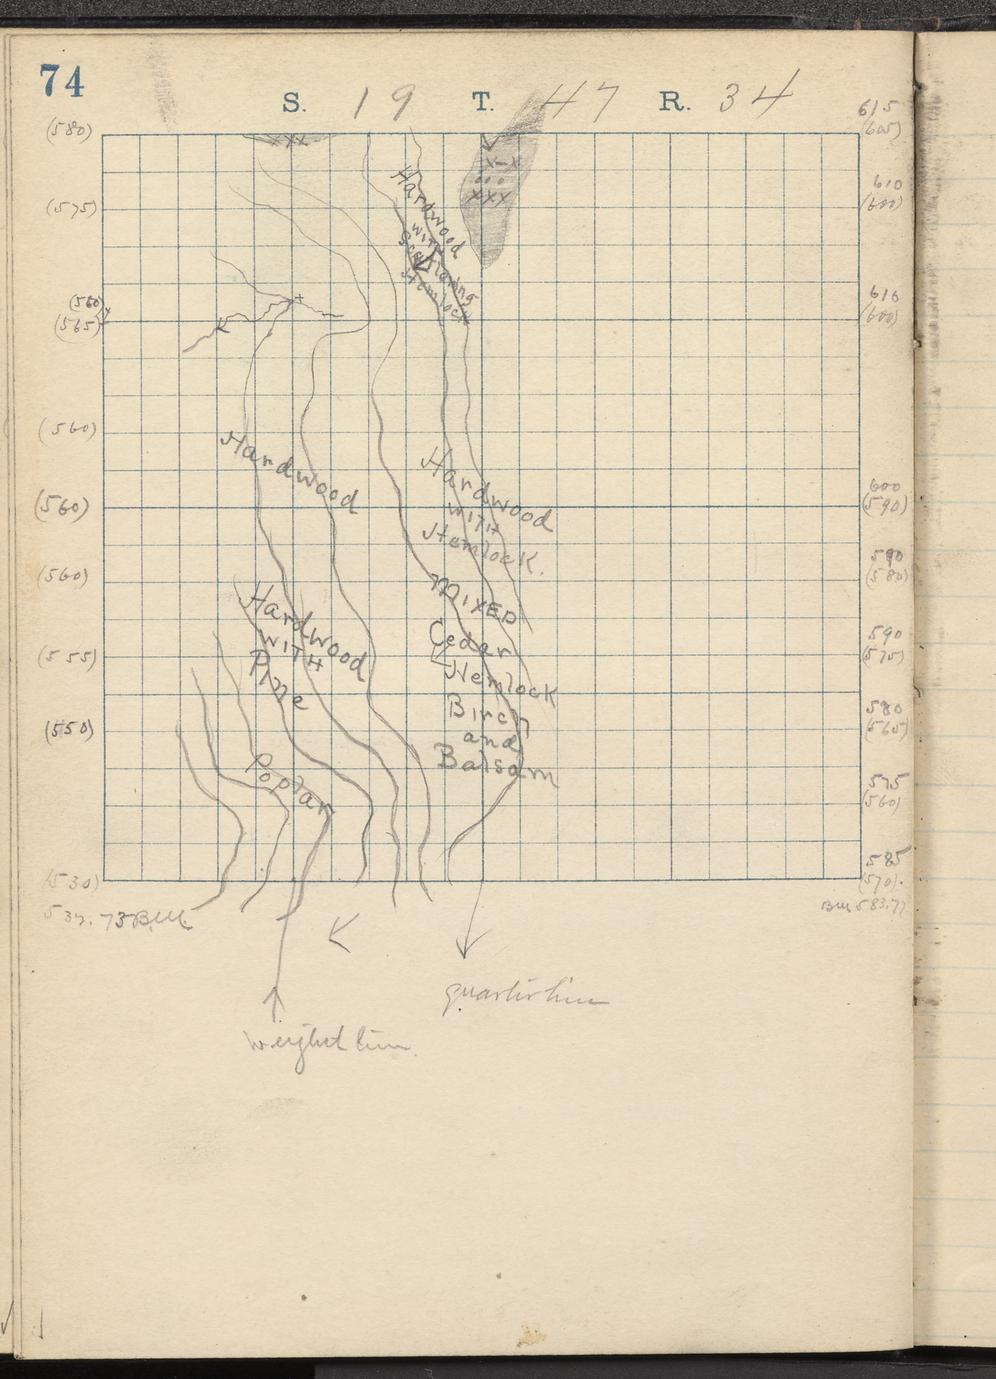 74
S. 19 T. 47 R. 34
(580)
615
(605)
xxx
x-x
o o o
xxx
(575)
610
(600)
Hardwood
with
Scattering
Hemlock
(560)
(565)
610
(600)
(560)
Hardwood
Hardwood
WITH
Hemlock.
(560)
600
(590)
(560)
590
(580)
MIXED
Hardwood
WITH
Pine
Cedar
Hemlock
Birch
and
Balsam
(555)
590
(575)
(550)
580
(565)
Poplar
575
(560)
(530)
585
(570).
B.M.
BM 583.77
quarter line
weight line